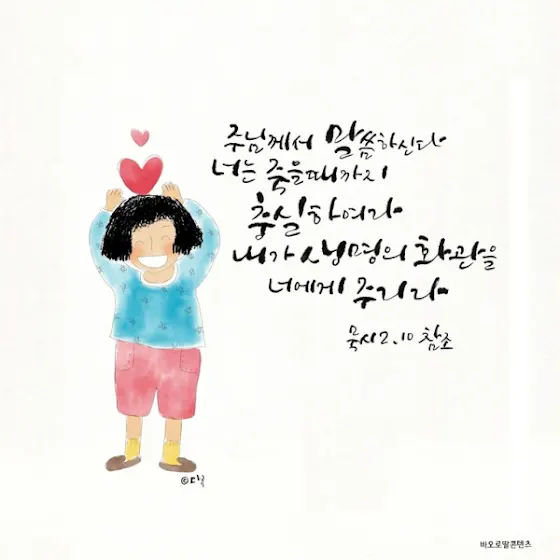 주님께서 말씀하신다
너는 죽을때까지
충실하여라
내가 생명의 화관을
너에게 주리라
묵시 2,10 참조
바오로딸콘텐츠